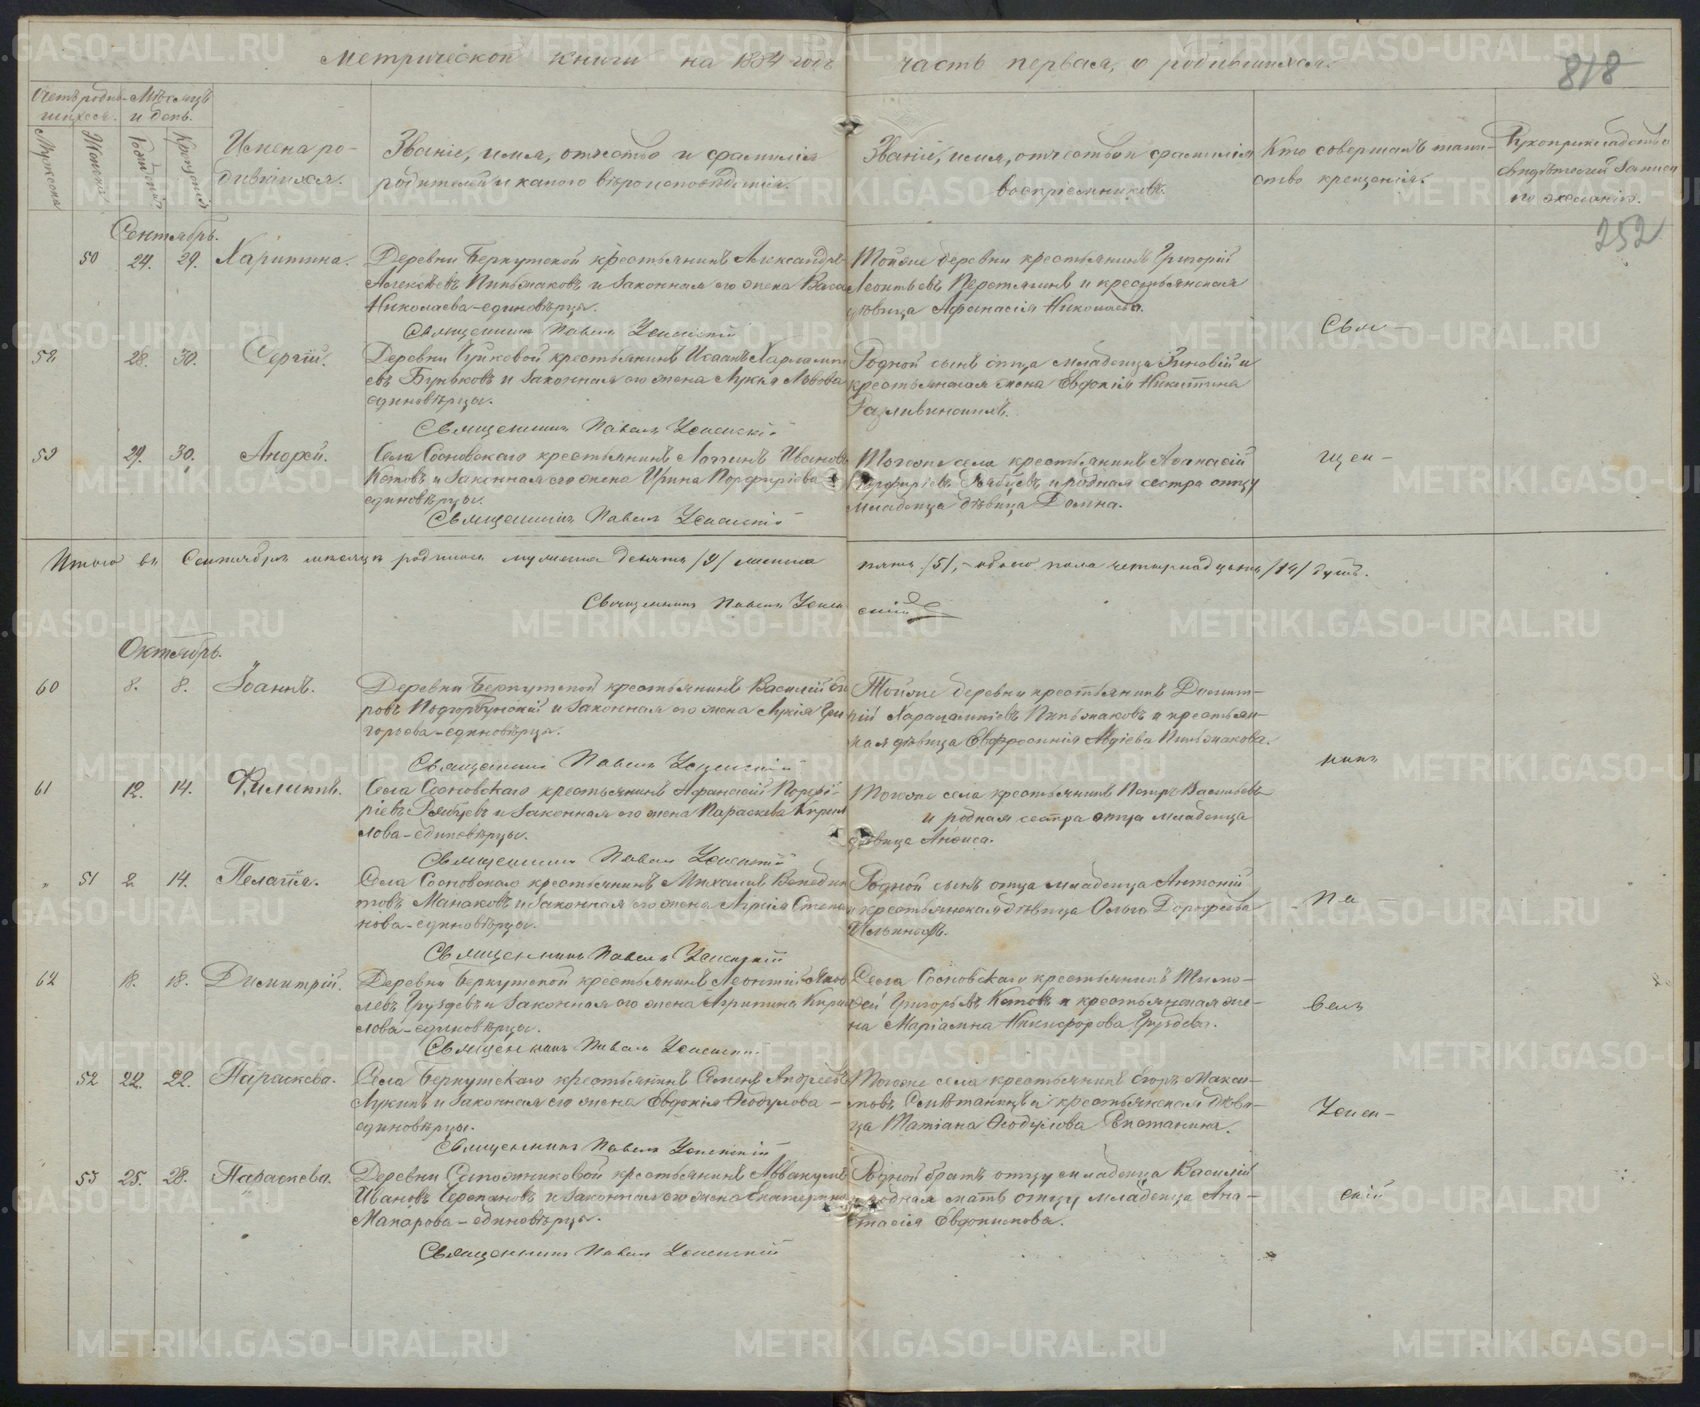 Метрической книги на 1884 годъ часть первая, о родившихся.
818
Счетъ родив-
шихся.
Мѣсяцъ
и день.
Мужеска
Женска
Рожденія
Крещенія
Имена ро-
дившихся.
Званіе, имя, отчество и фамилія
родителей и какого вѣроисповѣданія.
Званіе, имя, отчество и фамилія
воспріемниковъ.
Кто совершалъ таин-
ство крещенія.
Рукоприкладство
свидѣтелей записи
по желанію.
252
Сентябрь.
50 24. 29. Харитина.
Деревни Беркутской крестьянинъ Александръ
Алексѣевъ Пиньжаковъ и законная его жена Васса
Николаева-единовѣрцы.
Священникъ Павелъ Успенскій
Тойже деревни крестьянинъ Григорій
Леонтьевъ Перетягинъ и крестьянская
дѣвица Афанасія Николаева.
Свя-
58 28. 30. Сергій.
крестьянинъ Исаакъ Харлампі
евъ Буньковъ и законная его жена Лукія Львова
единовѣрцы.
Священникъ Павелъ Успенскій
Родной сынъ отца младенца Зиновій и
крестьянская жена Евдокія Никитина
59 29. 30. Андрей.
Села Сосновскаго крестьянинъ Логгинъ Ивановъ
Котовъ и законная его жена Ирина Порфиріева
единовѣрцы.
Священникъ Павелъ Успенскій
Тогоже села крестьянинъ Афанасій
Порфиріевъ Рябцевъ и родная сестра отцу
младенца дѣвица Домна.
щен-
Итого въ Сентябрѣ мѣсяцѣ родилось мужеска девять /9/ женска пять /5/,-обоего пола четырнадцать /14/ душъ.
Священникъ Павелъ Успен скій
Октябрь.
60 8. 8. Іоаннъ.
Деревни Беркутской крестьянинъ Василій
ровъ Подгорбунскій и законная его жена Лукія Гри
горьева-единовѣрцы.
Священникъ Павелъ Успенскій
Тойже деревни крестьянинъ Димит-
рій Харлампіевъ Пиньжаковъ и крестьян-
ская дѣвица Евфросинія Авдіева Пиньжакова.
никъ
61 12. 14. Филиппъ.
Села Сосновскаго крестьянинъ Афанасій Порфи-
ріевъ Рябцевъ и законная его жена Параскева Кирил
лова-единовѣрцы.
Священникъ Павелъ Успенскій
Тогоже села крестьянинъ Петръ Васильевъ
и родная сестра отца младенца
дѣвица Анфиса.
" 51 2 14. Пелагія.
Села Сосновскаго крестьянинъ Михаилъ Венедик
товъ Манаковъ и законная его жена Лукія Степа
нова-единовѣрцы.
Священникъ Павелъ Успенскій
Родной сынъ отца младенца Антоній
и крестьянская дѣвица Ольга Дорофеева
Па
62 18. 18. Димитрій.
Деревни Беркутской крестьянинъ Леонтій Яков
левъ Груздевъ и законная его жена Агрипина Кирил
лова-единовѣрцы.
Священникъ Павелъ Успенскій
Села Сосновскаго крестьянинъ Тимо-
фей Григорьевъ Котовъ и крестьянская же-
на Маріамна Никифорова Груздева.
велъ
52 22. 22. Параскева.
Села Беркутскаго крестьянинъ Семенъ Андреевъ
Лукинъ и законная его жена Евдокія Феодулова -
единовѣрцы.
Священникъ Павелъ Успенскій
Тогоже села крестьянинъ Егоръ Макси-
мовъ и крестьянская дѣви-
ца Татіана Феодулова
Успен-
53 25. 28. Параскева.
Деревни Сапожниковой крестьянинъ Аввакумъ
Ивановъ Черепановъ и законная его жена Екатерина
Макарова-единовѣрцы.
Священникъ Павелъ Успенскій
Родной братъ отцу младенца Василій
и родная мать отцу младенца Ана-
стасія Евдокимова.
скій
METRIKI.GASO-URAL.RU